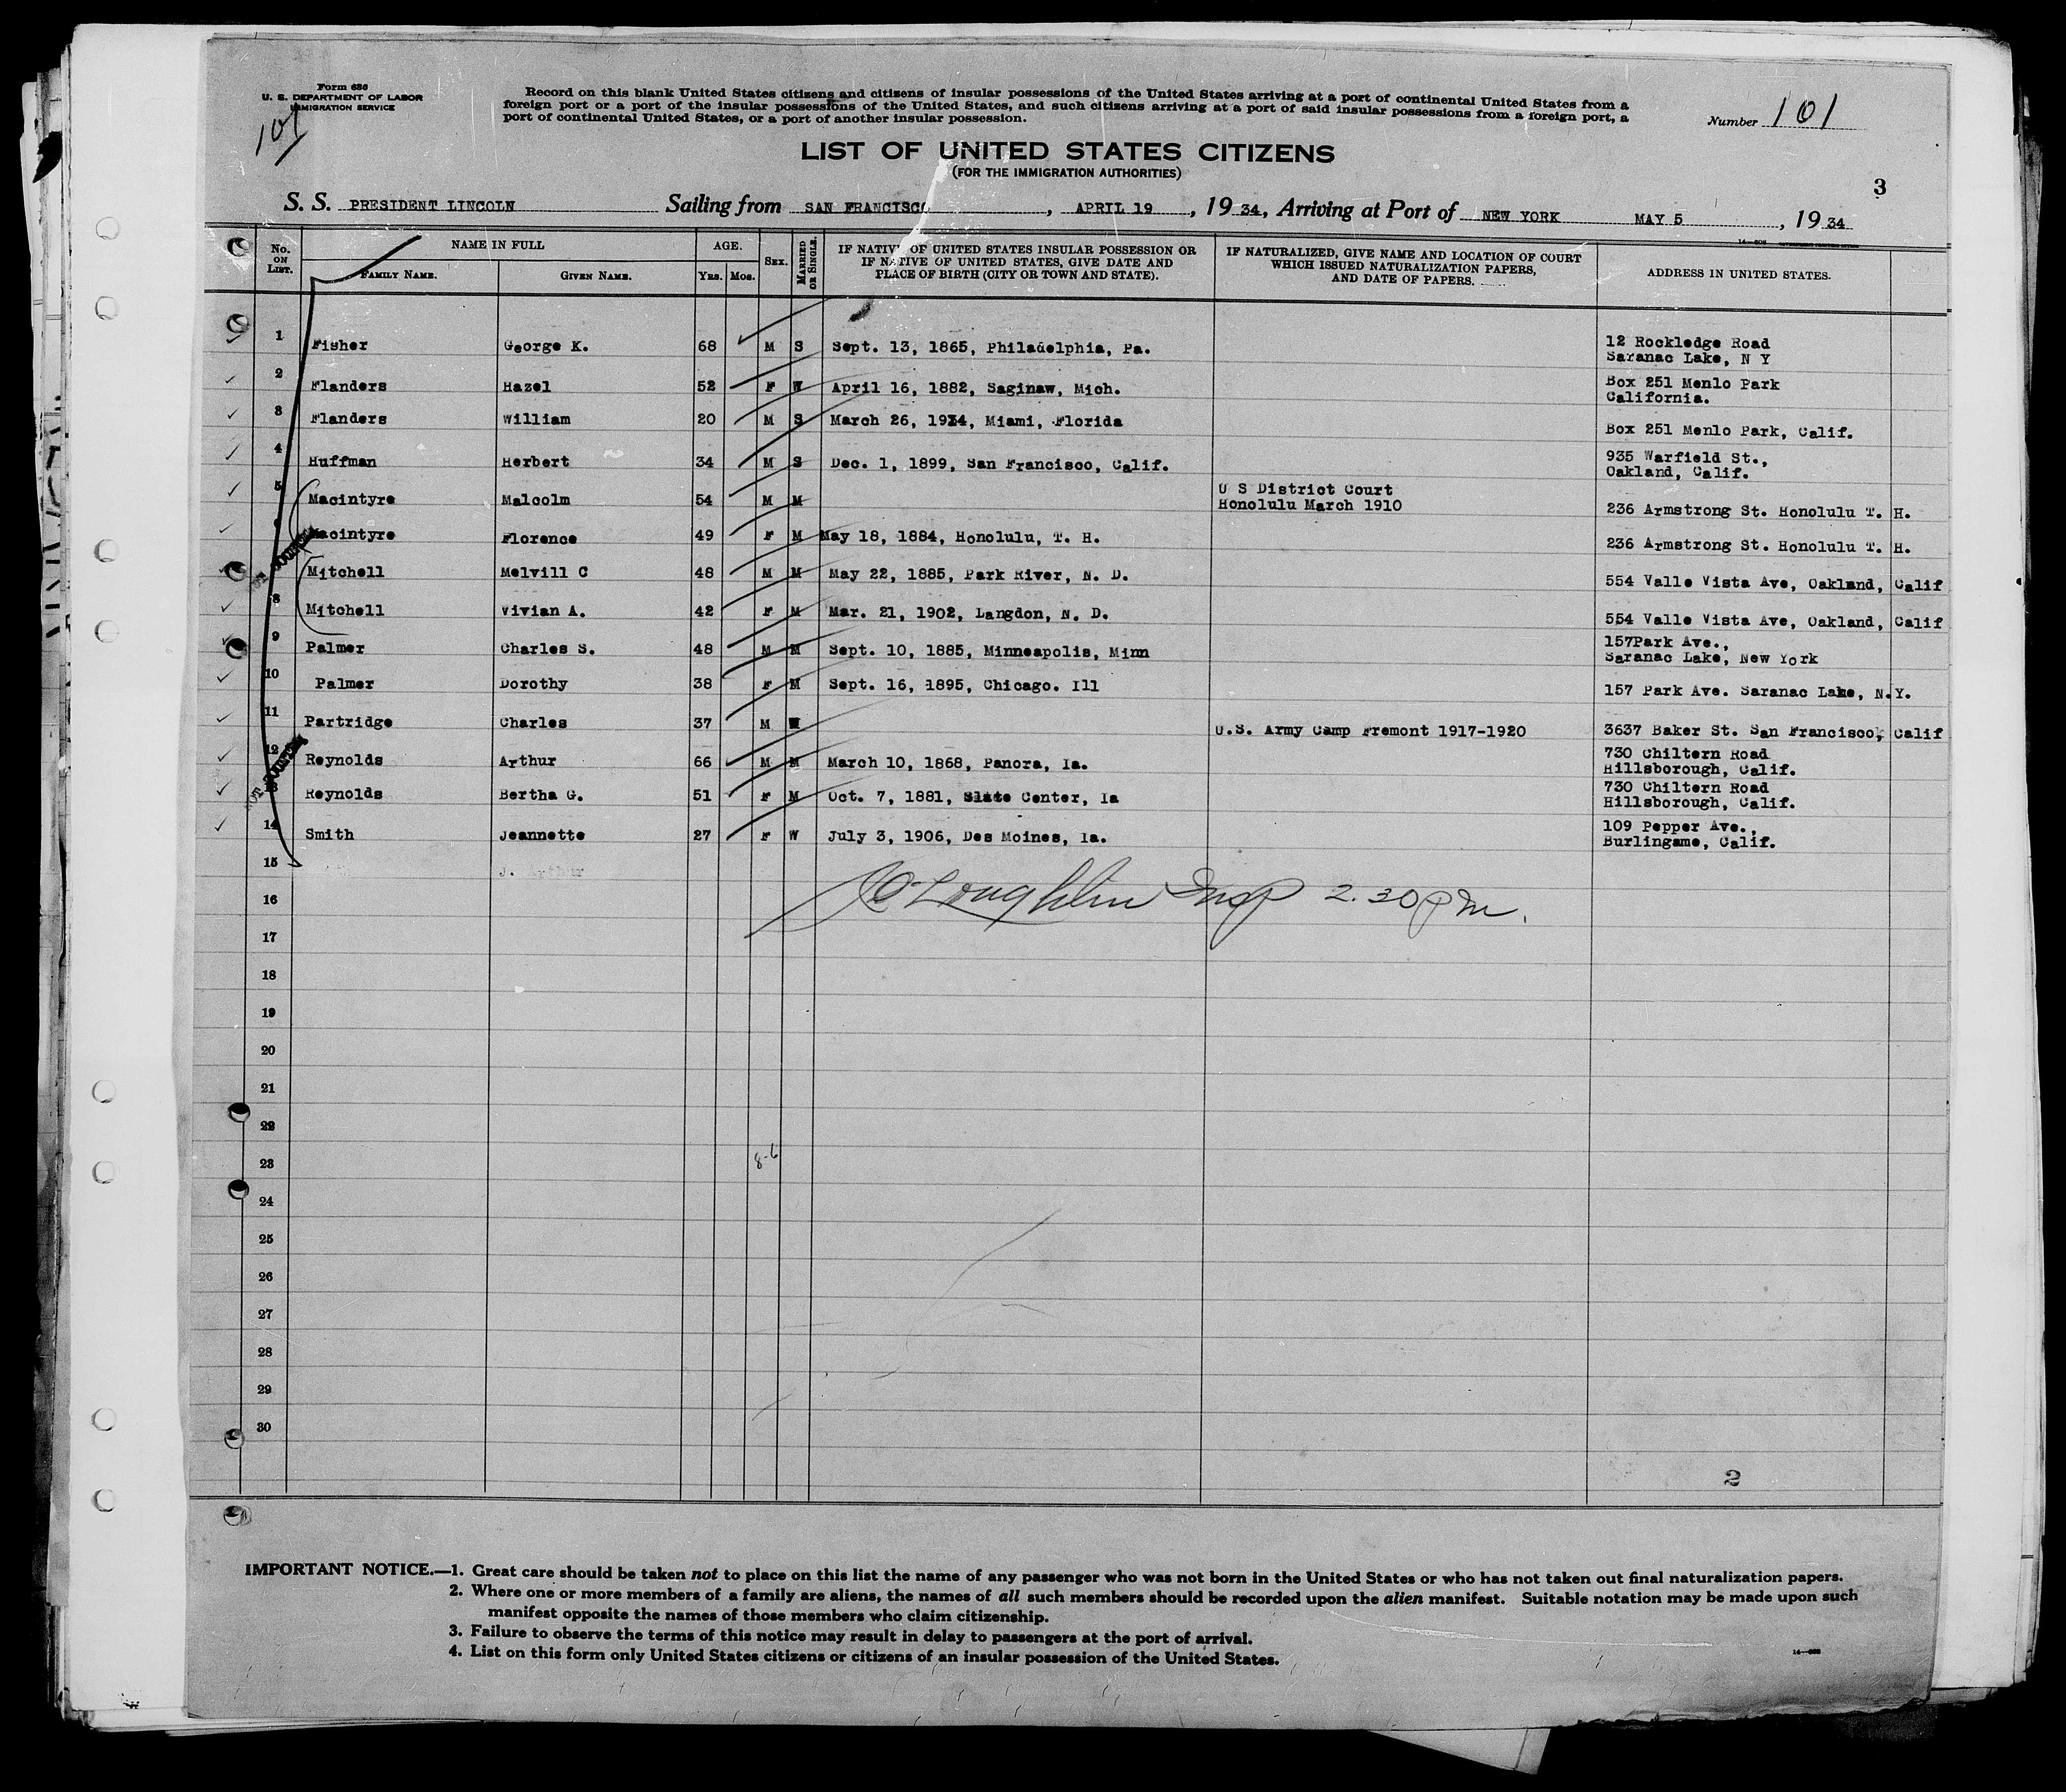 Form 686
U. S. DEPARTMENT OF LABOR
IMMIGRATION SERVICE
101
Record on this blank United States citizens and citizens of insular possessions of the United States arriving at a port of continental United States from a
foreign port or a port of the insular possessions of the United States, and such citizens arriving at a port of said insular possessions from a foreign port, a
port of continental United States, or a port of another insular possession.
Number 101
LIST OF UNITED STATES CITIZENS
(FOR THE IMMIGRATION AUTHORITIES)
3
S. S. PRESIDENT LINCOLN Sailing from SAN FRANCISCO, APRIL 19, 1934, Arriving at Port of NEW YORK MAY 5, 1934
No. ON LIST. NAME IN FULL AGE. SEX. MARRIED OR SINGLE. IF NATIVE OF UNITED STATES INSULAR POSSESSION OR IF NATIVE OF UNITED STATES, GIVE DATE AND PLACE OF BIRTH (CITY OR TOWN AND STATE). IF NATURALIZED, GIVE NAME AND LOCATION OF COURT WHICH ISSUED NATURALIZATION PAPERS, AND DATE OF PAPERS. ADDRESS IN UNITED STATES.
FAMILY NAME. GIVEN NAME. YRS. MOS.
1 Fisher George K. 68 M S Sept. 13, 1865, Philadelphia, Pa. 12 Rockledge Road
Saranac Lake, N Y
2 Flanders Hazel 52 F W April 16, 1882, Saginaw, Mich. Box 251 Menlo Park
California.
3 Flanders William 20 M S March 26, 1914, Miami, Florida Box 251 Menlo Park, Calif.
4 Huffman Herbert 34 M S Dec. 1, 1899, San Francisco, Calif. 935 Warfield St.,
Oakland, Calif.
5 Macintyre Malcolm 54 M M U S District Court
Honolulu March 1910 236 Armstrong St. Honolulu T. H.
6 Macintyre Florence 49 F M May 18, 1884, Honolulu, T. H. 236 Armstrong St. Honolulu T. H.
Mitchell Melvill C 48 M M May 22, 1885, Park River, N. D. 554 Valle Vista Ave, Oakland, Calif
8 Mitchell Vivian A. 42 F M Mar. 21, 1902, Langdon, N. D. 554 Valle Vista Ave, Oakland, Calif
9 Palmer Charles S. 48 M M Sept. 10, 1885, Minneapolis, Minn 157Park Ave.,
Saranac Lake, New York
10 Palmer Dorothy 38 F M Sept. 16, 1895, Chicago. Ill 157 Park Ave. Saranac Lake, N.Y.
11 Partridge Charles 37 M U.S. Army Camp Fremont 1917-1920 3637 Baker St. San Francisco, Calif
12 Reynolds Arthur 66 M M March 10, 1868, Panora, Ia. 730 Chiltern Road
Hillsborough, Calif.
13 Reynolds Bertha G. 51 F M Oct. 7, 1881, State Center, Ia 730 Chiltern Road
Hillsborough, Calif.
14 Smith Jeannette 27 F W July 3, 1906, Des Moines, Ia. 109 Pepper Ave.,
Burlingame, Calif.
15 J. Arthur
O'Loughlin Insp 2.30 PM.
16
17
18
19
20
21
22
23 8-6
24
25
26
27
28
29
30
2
IMPORTANT NOTICE.—1. Great care should be taken not to place on this list the name of any passenger who was not born in the United States or who has not taken out final naturalization papers.
2. Where one or more members of a family are aliens, the names of all such members should be recorded upon the alien manifest. Suitable notation may be made upon such
manifest opposite the names of those members who claim citizenship.
3. Failure to observe the terms of this notice may result in delay to passengers at the port of arrival.
4. List on this form only United States citizens or citizens of an insular possession of the United States.